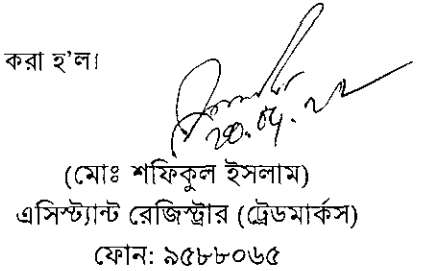 করা হ'ল।
(মোঃ শফিকুল ইসলাম)
এসিস্ট্যান্ট রেজিস্ট্রার (ট্রেডমার্কস)
ফোন: ৯৫৮৮০৬৫